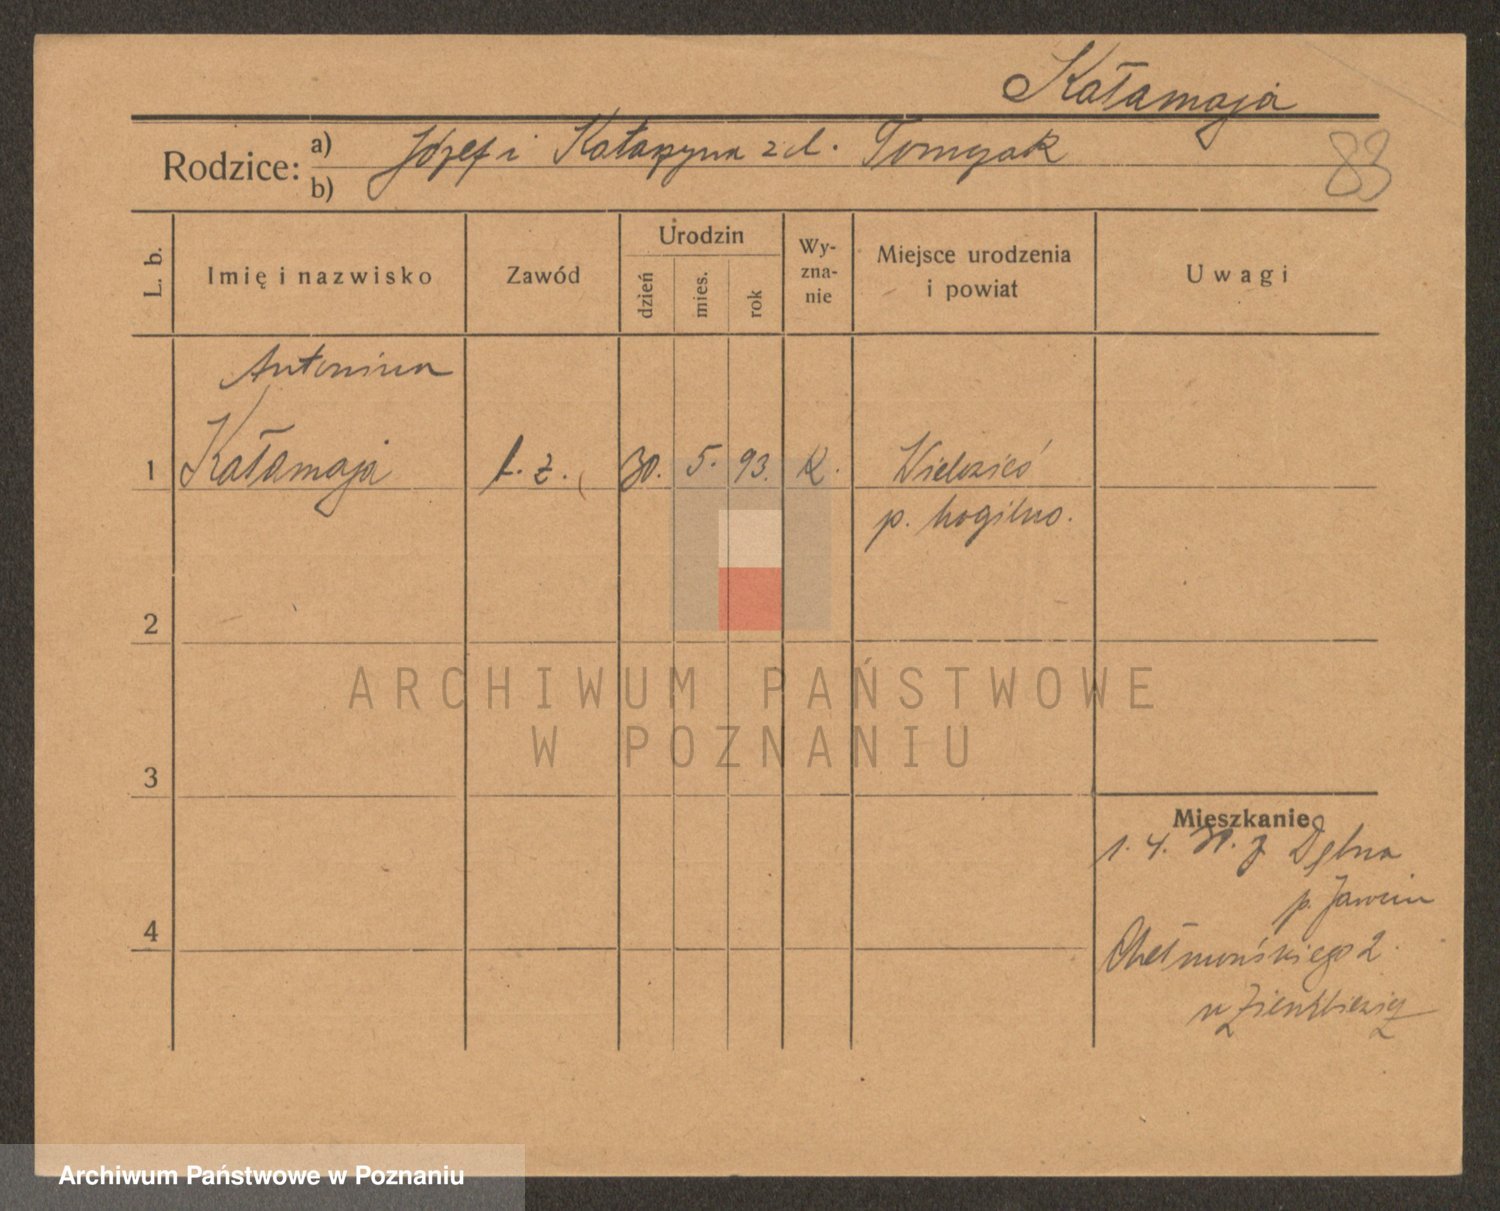 Kałamaja
Rodzice: a) Józef i Katarzyna z d. Tomczak
b)
83
L. b.
Imię i nazwisko
Zawód
Urodzin
dzień
mies.
rok
Wy-
zna-
nie
Miejsce urodzenia
i powiat
Uwagi
Antonina
1 Kałamaja ż. 30. 5. 93. K.
p. Mogilno.
2
3
4
Mieszkanie
1. 4. z Dębna
p. Jarocin
Chełmońskiego 2
u
ARCHIWUM PAŃSTWOWE
W POZNANIU
Archiwum Państwowe w Poznaniu